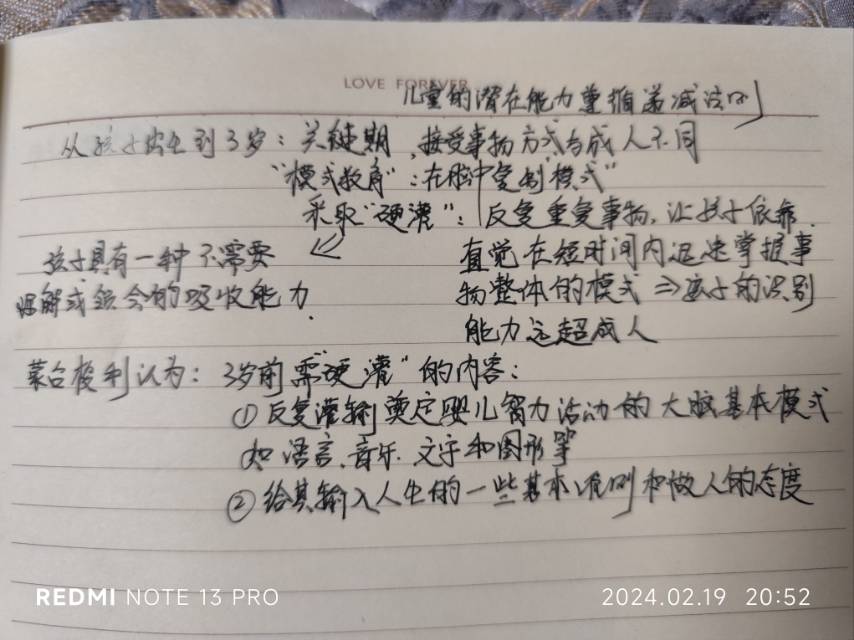 LOVE FOREVER
儿童的潜在能力遵循递减法则
从孩子出生到3岁：关键期，接受事物方式与成人不同
"模式教育"：在脑中复制模式"
采取"硬灌"：反复重复事物，让孩子依靠
直觉在短时间内迅速掌握事
物整体的模式⇒孩子的识别
能力远超成人
孩子具有一种不需要
理解或领会的吸收能力.
蒙台梭利认为：3岁前需"硬灌"的内容：
①反复灌输奠定婴儿智力活动的大脑基本模式
如语言、音乐、文字和图形等
②给其输入人生的一些基本准则和做人的态度
REDMI NOTE 13 PRO
2024.02.19 20:52